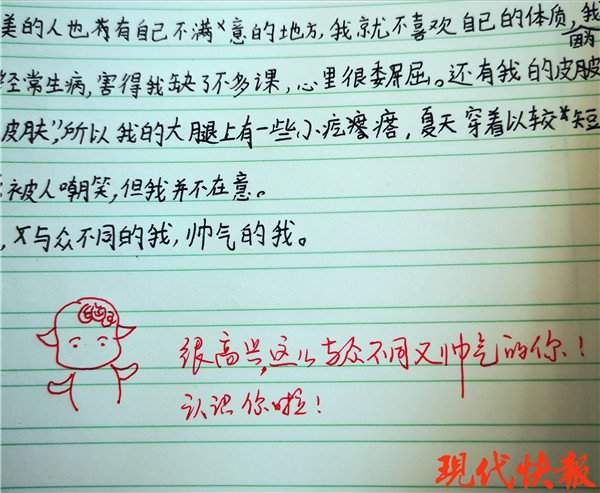 美的人也有自己不满意的地方,我就不喜欢自己的体质,我
因为
经常生病,害得我缺了不多课,心里很委屈。还有我的皮肤
皮肤”,所以我的大腿上有一些小疙瘩,夏天穿着以较短
被人嘲笑,但我并不在意。
,与众不同的我,帅气的我。
很高兴,这么与众不同又帅气的你!
认识你啦!
现代快报